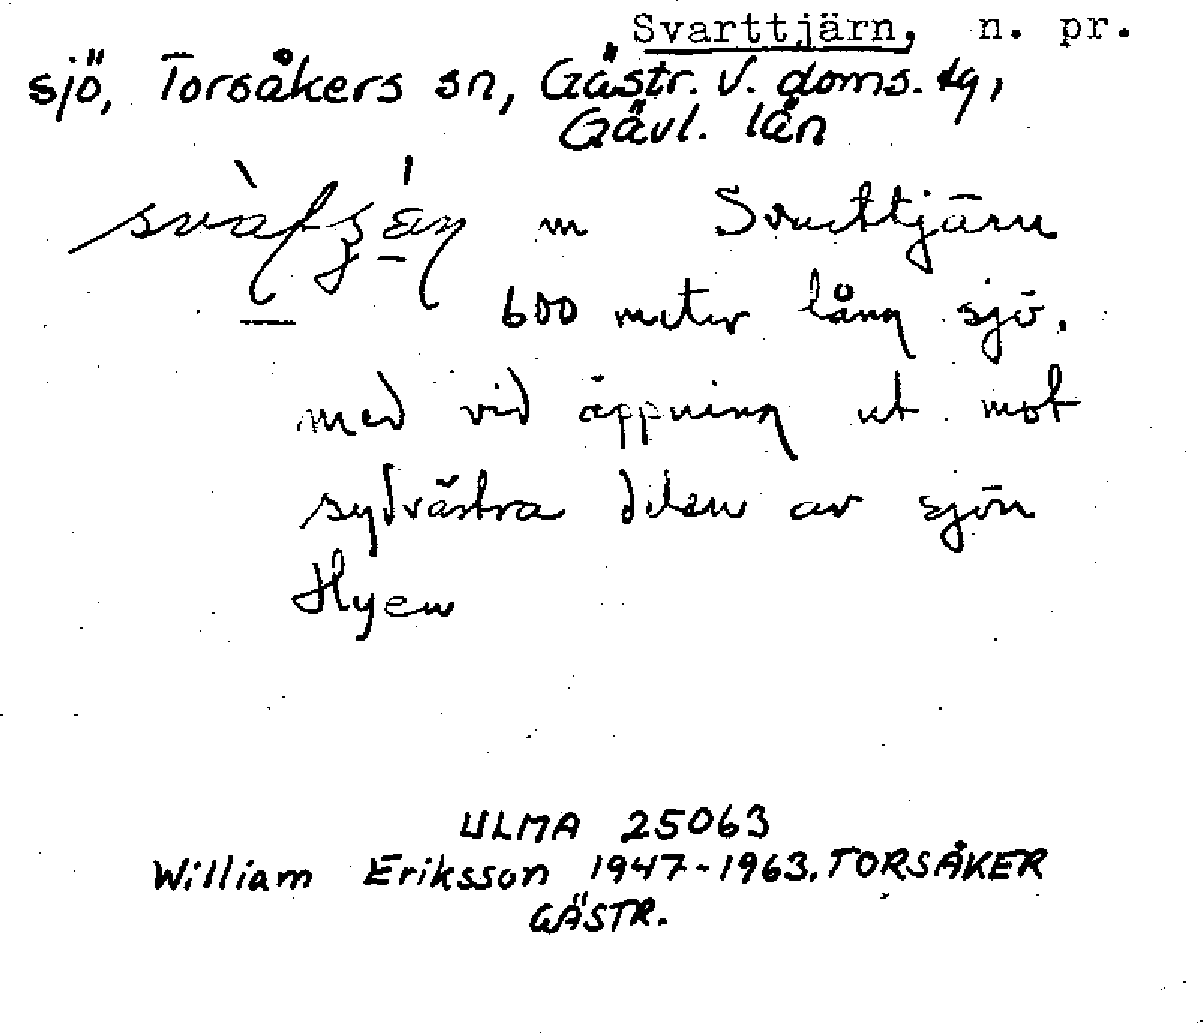 Svarttjärn, n. pr.
sjö, Torsåkers sn, Gästr. V. doms. tg,
Gävl. län
m Svarttjärn
600 meter lång sjö,
med vid öppning ut mot
sydvästra delen av sjön
Hyen
ULMA 25063
William Eriksson 1947-1963. TORSÅKER
GÄSTR.